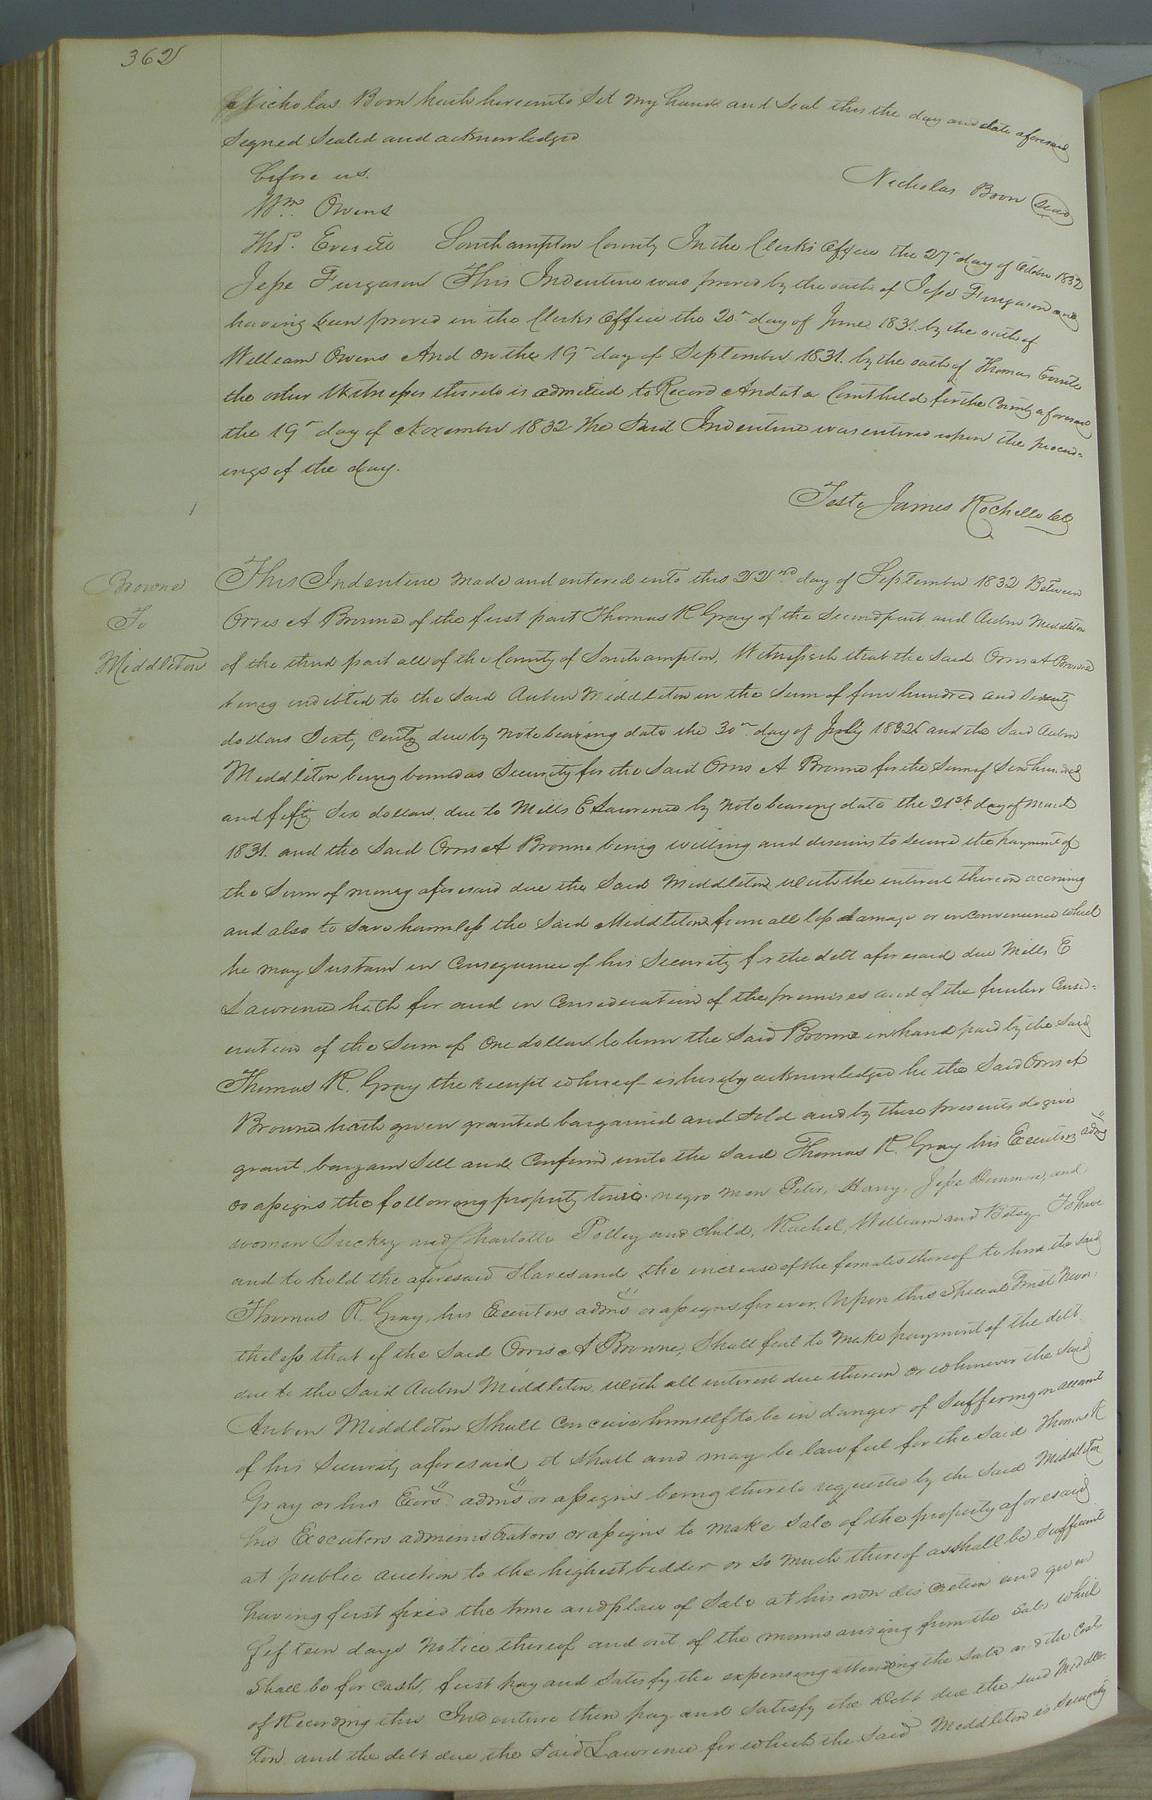 362
Nicholas Boon hath hereunto Set my hand and Seal this the day and date aforesaid
Signed Sealed and acknowledged
before us.
Nicholas Boon Seal
Wm. Owens
Thos. Everett Southampton County In the Clerks Office the 27th day of October 1832
Jesse Furgason This Indenture was proved by the oath of Jesse Furgason and
having been proved in the Clerks Office the 20th day of June 1831. by the oath of
William Owens And on the 19th day of September 1831. by the oath of Thomas Everette
the other Witnesses thereto is admitted to Record And at a Court held for the County aforesaid
the 19th day of November 1832 the Said Indenture was entered upon the proceed-
ings of the day.
Teste James Rochelle CC
Browne
To
Middleton
This Indenture made and entered into this 22nd day of September 1832 Between
Orris A Browne of the first part Thomas R Gray of the Second part and Aubin Middleton
of the third part all of the County of Southampton, Witnesseth that the Said Orris A Browne
being indebted to the Said Aubin Middleton in the Sum of four hundred and
dollars Sixty Cents due by note bearing date the 30th day of July 1832 and the Said Aubin
Middleton being bound as Security for the Said Orris A Browne for the Sum of Six hundred
and fifty Six dollars due to Mills E Lawrence by note bearing date the 21st day of March
1831. and the Said Orris A Browne being willing and desirous to secure the payment of
the Sum of money aforesaid due the Said Middleton with the interest thereon accruing
and also to Save harmless the Said Middleton from all loss damage or inconvenience which
he may Sustain in Consequence of his Security for the debt aforesaid due Mills E
Lawrence hath for and in Consideration of the premises and of the further Consid-
eration of the Sum of One dollar to him the Said Browne in hand paid by the Said
Thomas R. Gray the receipt whereof is hereby acknowledged he the Said Orris A
Browne hath given granted bargained and Sold and by these presents do give
grant, bargain Sell and Confirm unto the Said Thomas R. Gray his Executors adms
or assigns the following property towit. negro men Peter, Harry, Jesse Drummer, and
women Suckey and Charlotte Polley and child, Rachel, William and Betsy To have
and to hold the aforesaid Slaves and the increase of the females thereof to him the Said
Thomas R. Gray, his Executors adms or assigns for ever. Upon this Special Trust Never-
theless that if the Said Orris A Browne, Shall fail to make payment of the debt
due to the Said Aubin Middleton with all interest due thereon or whenever the Said
Aubin Middleton Shall Conceive himself to be in danger of Suffering on account
of his Security aforesaid it Shall and may be lawful for the Said Thomas R
Gray or his Exors. adms or assigns being thereto requested by the Said Middleton
his Executors administrators or assigns to make Sale of the property aforesaid
at public auction to the highest bidder or so much thereof as shall be Sufficient
having first fixed the time and place of Sale at his own discretion and given
fifteen days Notice thereof and out of the monies arising from the Sale which
Shall be for Cash, first pay and Satisfy the expenses attending the Sale and the Costs
of Recording this Indenture then pay and Satisfy the Debt due the Said Middle-
ton and the debt due the Said Lawrence for which the Said Middleton is Security